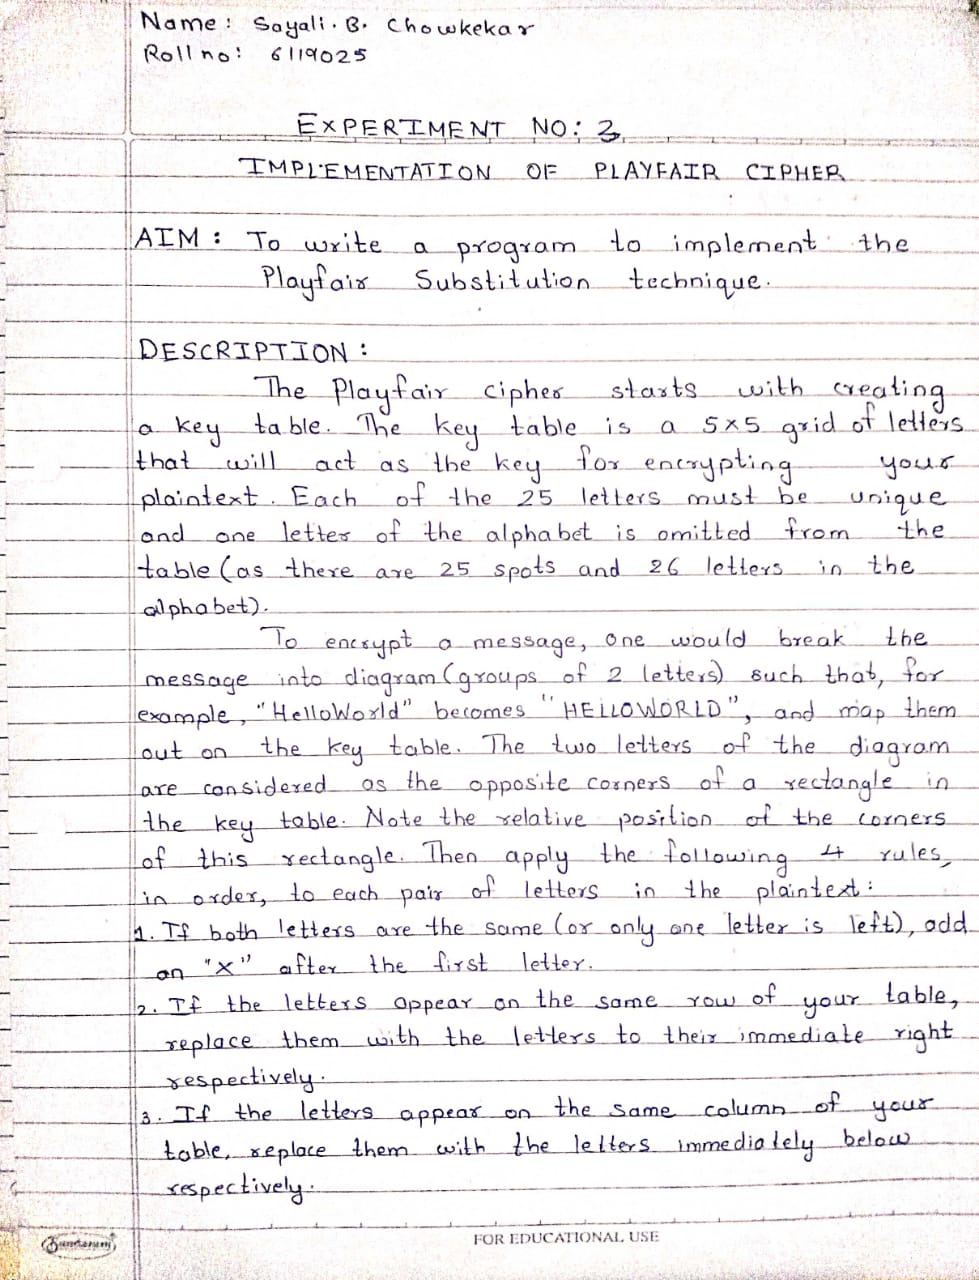 Name: Sayali. B. Chowkekar
Roll no: 6119025
EXPERIMENT NO: 3
IMPLEMENTATION OF PLAYFAIR CIPHER
AIM: To write a program to implement the
Playfair Substitution technique.
DESCRIPTION:
The Playfair cipher starts with creating
a key table. The key table is a 5x5 grid of letters
that will act as the key for encrypting your
plaintext. Each of the 25 letters must be unique
and one letter of the alphabet is omitted from the
table (as there are 25 spots and 26 letters in the
alphabet).
To encrypt a message, one would break the
message into diagram (groups of 2 letters) such that, for
example, "HelloWorld" becomes "HELLOWORLD", and map them
out on the key table. The two letters of the diagram
are considered as the opposite corners of a rectangle in
the key table. Note the relative position of the corners
of this rectangle. Then apply the following 4 rules,
in order, to each pair of letters in the plaintext:
1. If both letters are the same (or only one letter is left), add
an "X" after the first letter.
2. If the letters appear on the same row of your table,
replace them with the letters to their immediate right
respectively.
3. If the letters appear on the same column of your
table, replace them with the letters immediately below
respectively.
Sundaram
FOR EDUCATIONAL USE